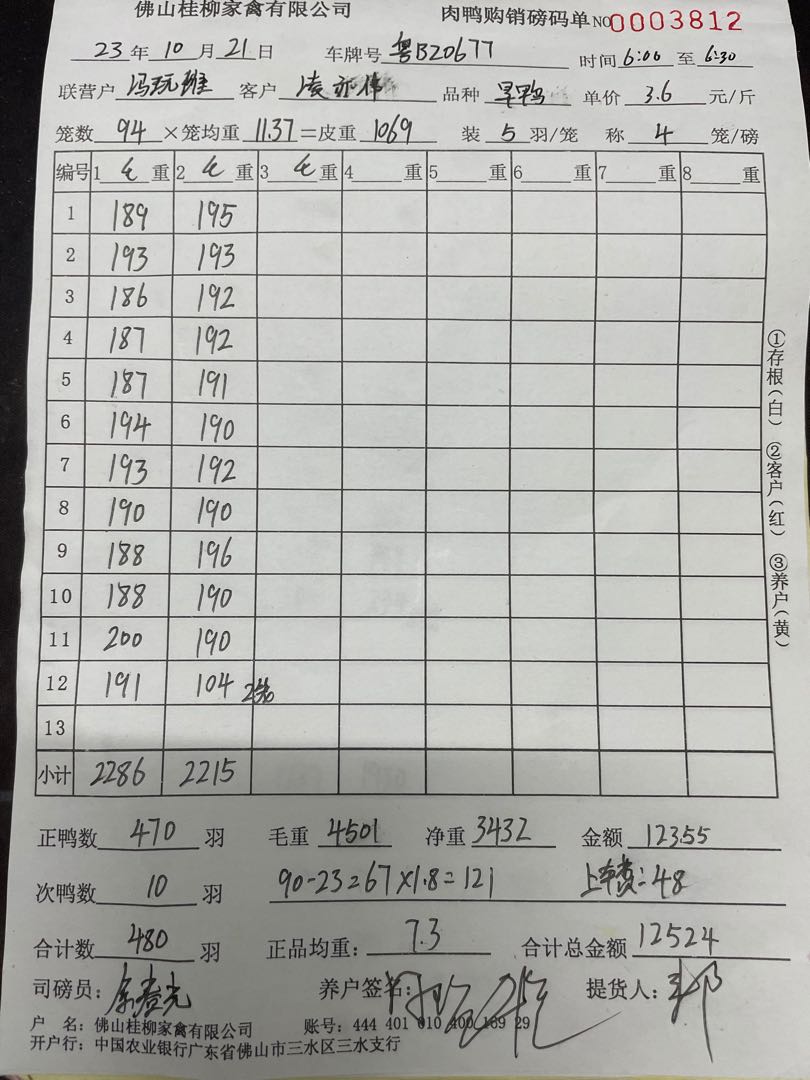 佛山桂柳家禽有限公司 肉鸭购销磅码单 NO 0003812
23年10月21日 车牌号 粤B20677 时间 6:00 至 6:30
联营户 客户 凌亦伟 品种 旱鸭 单价 3.6 元/斤
笼数 94 ×笼均重 11.37 =皮重 1069 装 5 羽/笼 称 4 笼/磅
编号 1 重 2 重 3 重 4 重 5 重 6 重 7 重 8 重
1 189 195
2 193 193
3 186 192
4 187 192
5 187 191
6 194 190
7 193 192
8 190 190
9 188 196
10 188 190
11 200 190
12 191 104 2笼
13
小计 2286 2215
①存根(白) ②客户(红) ③养户(黄)
正鸭数 470 羽 毛重 4501 净重 3432 金额 12355
次鸭数 10 羽 90-23=67×1.8=121 上车费:48
合计数 480 羽 正品均重: 7.3 合计总金额 12524
司磅员: 养户签名: 提货人:
户 名: 佛山桂柳家禽有限公司 账号: 444 401 010 400 169 29
开户行: 中国农业银行广东省佛山市三水区三水支行